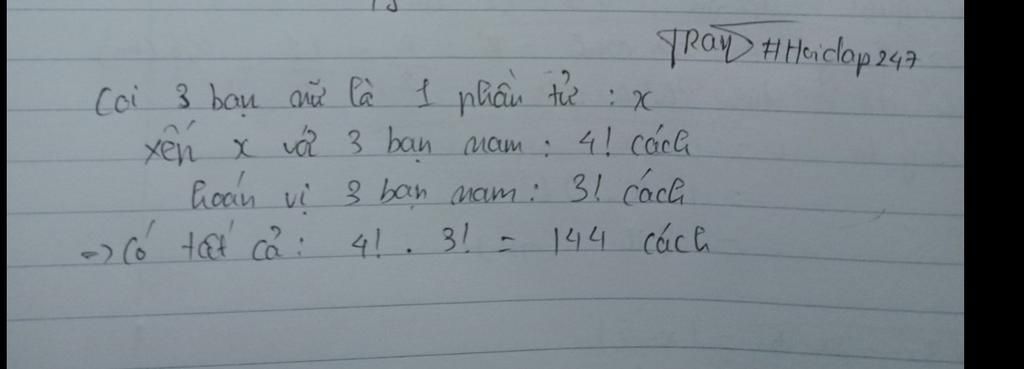 TRAY #Hoidap247
Coi 3 bạn nữ là 1 phần tử : x
xếp x với 3 bạn nam : 4! cách
hoán vị 3 bạn nam : 3! cách
=> Có tất cả : 4! . 3! = 144 cách